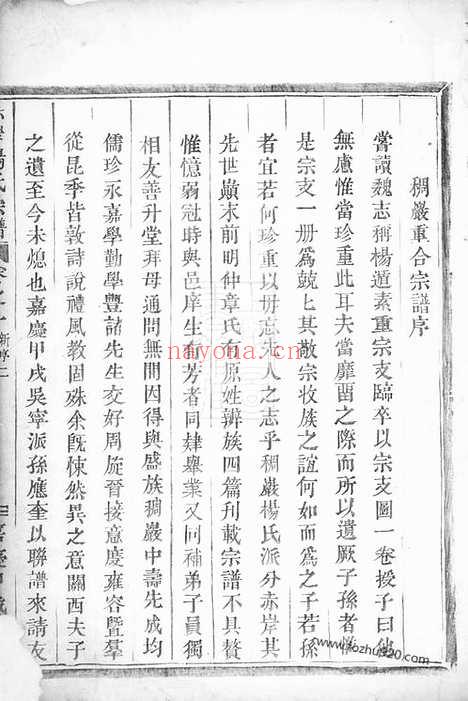 稠巖重合宗譜序
嘗讀魏志稱楊遁素重宗支臨卒以宗支圖一卷授子曰他
無慮惟當珍重此耳夫當靡畱之際而所以遺厥子孫者惟
是宗支一册爲兢兢其敬宗收族之誼何如而爲之子若孫
者宜若何珍重以毋忘先人之志乎稠巖楊氏派分赤岸其
先世巔末前明仲章氏有原姓辨族四篇刊載宗譜不具贅
惟憶弱冠時與邑庠生有芳者同肄舉業又同補弟子員獨
相友善升堂拜母通無間因得與盛族稠巖中壽先成均
儒珍永嘉學勤學豐諸先生交好周旋晉接意度雍容暨羣
從昆季皆敦詩說禮風教固殊余旣悚然異之意關西夫子
之遺至今未熄也嘉慶甲戌吳寧派孫應奎以聯譜來請友
氏宗譜
新序二
nayona.cn
www.fozhu920.com